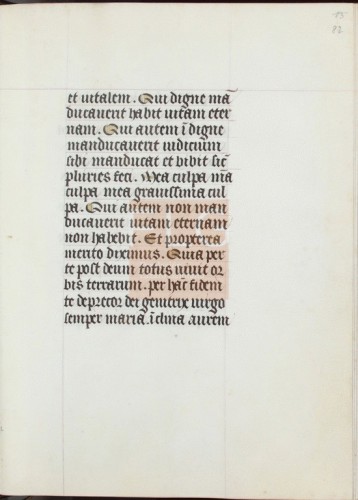 15
82
et uitalem. Qui digne mā
ducauerit habit uitam eter
nam. Qui autem ī digne
manducauerit iudicium
sibi manducat et bibit sic̄
pluries feci. Mea culpa mā
culpa mea grauissima cul
pa. Qui autem non man
ducauerit uitam eternam
non habebit. Et propterea
merito diximus. Quia per
te post deum totus uiuit or
bis terrarum. per hāc fidem
te deprecor dei genitrix uirgo
semper maria. īclina aurem